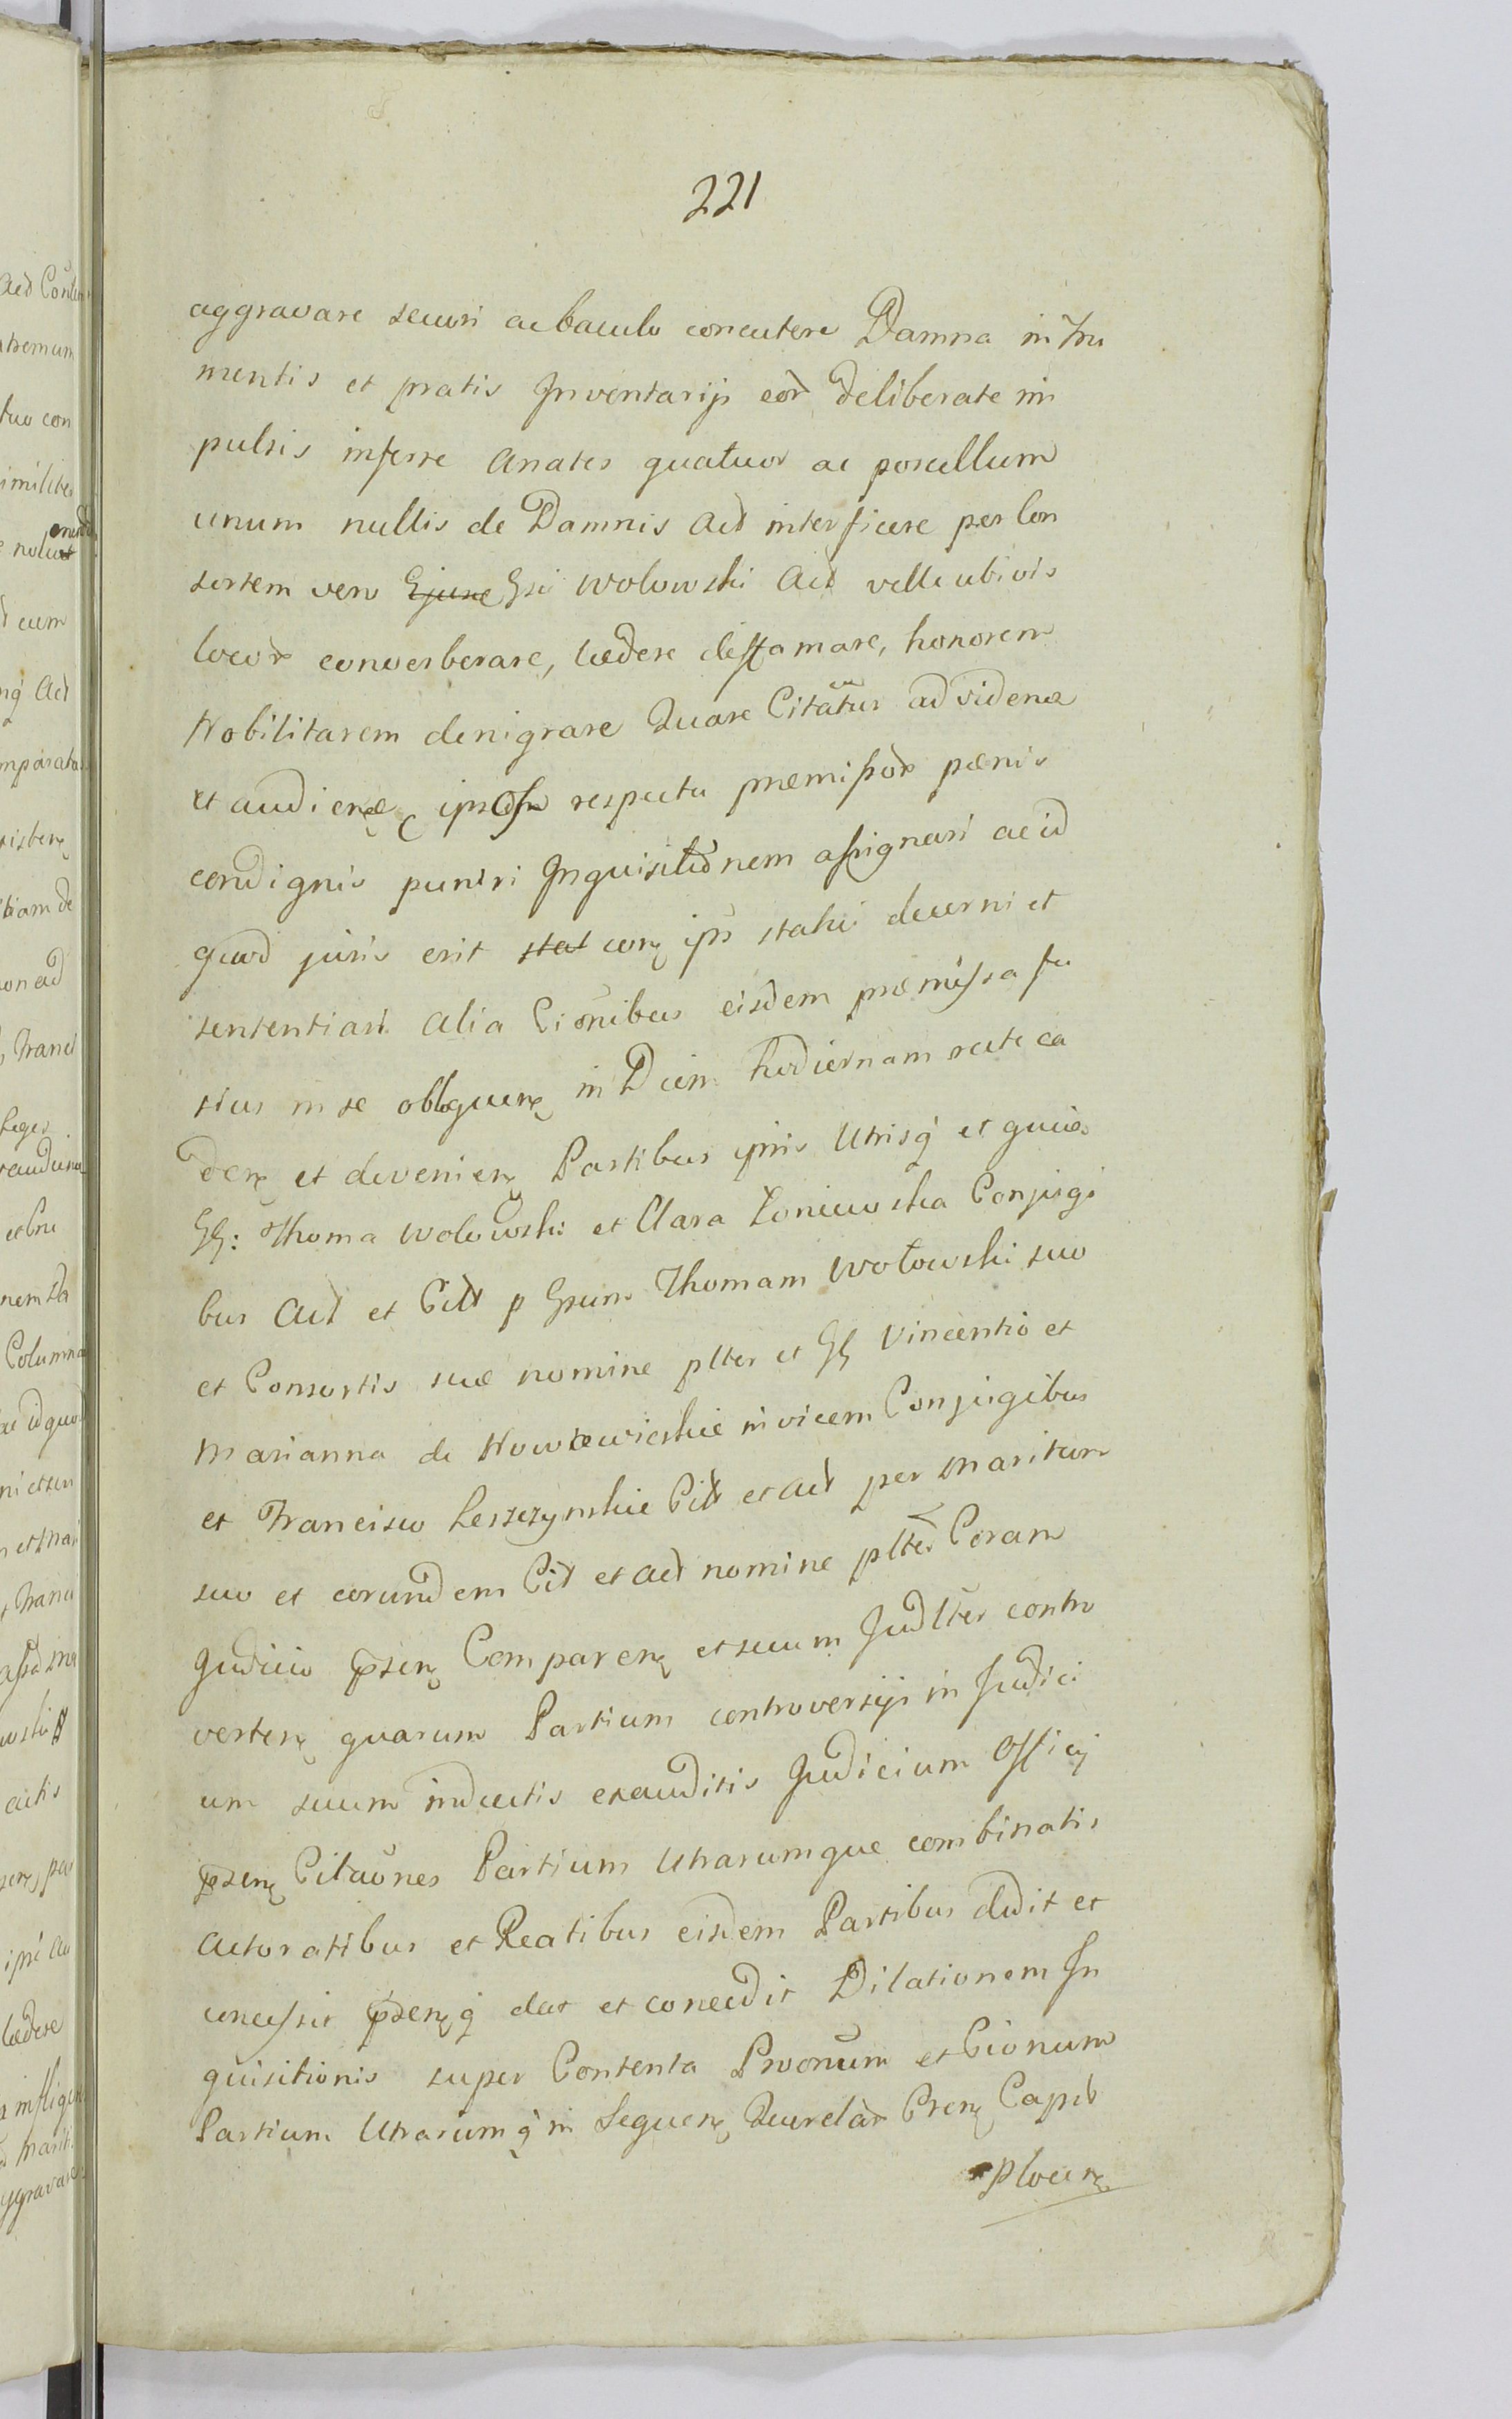 221
aggravare securi ac baculo concutere Damna in fru
mentis et pratis Inventarijs eor deliberate im
pulsis inferre anates quatuor ac porcellum
unum nullis de Damnis Act interficere per Con
sortem vero Ejusne Gsi Wolowski Act velle ubivis
locor converberare, lædere diffamare, honorem
Nobilitarem denigrare Quare Citatur ad videnæ
et audienæ ipsos respectu præmissor pænis
condignis puniri Inquisitionem assignari ac id
quod juris erit stat cerne ips statui decerni et
sententiari alia Cionibus eisdem præmissa fu
sius in se obloquen in Diem hodiernam recte ca
den et devenien Partibus ipsis Utrisq et quid
GG: Thoma Wolowski et Clara Koniewska Conjugi
bus Act et Citt p Gsum Thomam Wołowski suo
et Consortis suæ nomine plter et GG Vincentio et
Marianna de Nowowieskie invicem Conjugibus
et Francisco Leszczynskie Citt et Act per Maritum
suo et eorundem Cit et Act nomine plter Coram
Judicio psen Comparen et secum Judlter contro
verten quarum Partium controversijs in Judici
um suum inductis exauditis Judicium Officij
psen Citaones Partium Utrarumque combinatis
Actoratibus et Reatibus eisdem Partibus dedit et
concessit psenq dat et concedit Dilationem In
quisitionis super Contenta Pvonum et Cionum
Partium Utrarumq in Sequen Querelar Cren Capit
Plocen